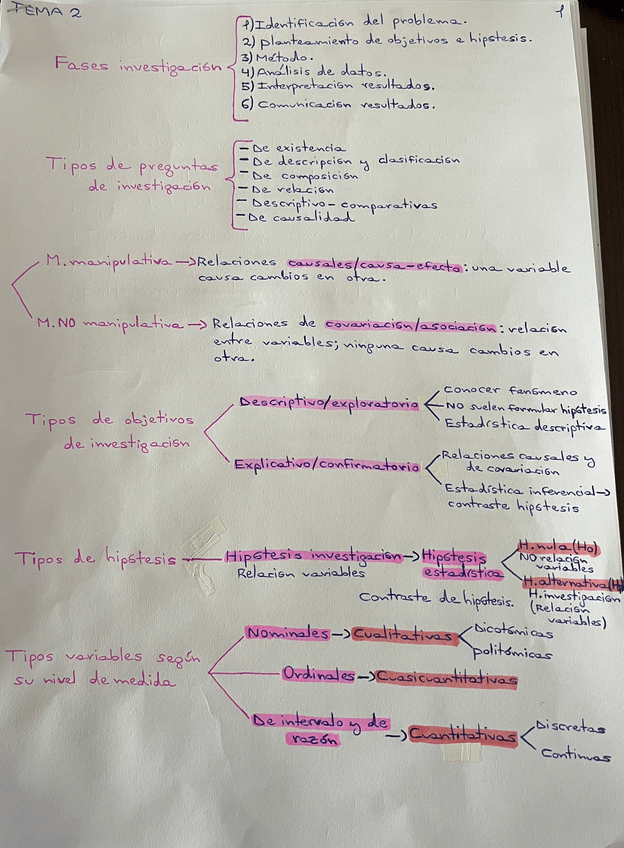 TEMA 2
1
Fases investigación
1) Identificación del problema.
2) planteamiento de objetivos e hipótesis.
3) Método.
4) Análisis de datos.
5) Interpretación resultados.
6) Comunicación resultados.
Tipos de preguntas
de investigación
- De existencia
- De descripción y clasificación
- De composición
- De relación
- Descriptivo-comparativas
- De causalidad
M. manipulativa → Relaciones causales/causa-efecto: una variable
causa cambios en otra.
M. NO manipulativa → Relaciones de covariación/asociación: relación
entre variables; ninguna causa cambios en
otra.
Tipos de objetivos
de investigación
Descriptivo/exploratorio
Conocer fenómeno
NO suelen formular hipótesis
Estadística descriptiva
Explicativo/confirmatorio
Relaciones causales y
de covariación
Estadística inferencial →
contraste hipótesis
Tipos de hipótesis
Hipótesis investigación → Hipótesis
estadística
Relación variables
H. nula (Ho)
NO relación
variables
H. alternativa (H
H. investigación
(Relación
variables)
Contraste de hipótesis.
Tipos variables según
su nivel de medida
Nominales → Cualitativas
Dicotómicas
politómicas
Ordinales → Cuasicuantitativas
De intervalo y de
razón
→ Cuantitativas
Discretas
Continuas